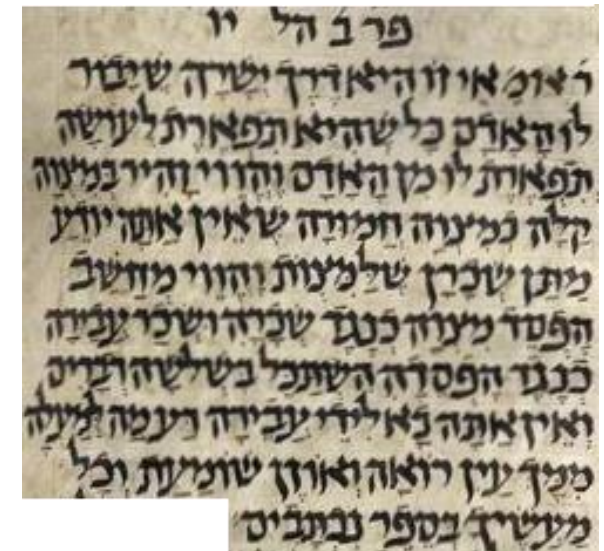 פר ב הל יו
ר אומ' אי זו היא דרך ישרה שיבור
לו האדם כל שהיא תפארת לעושה
תפארת לו מן האדם והווי זהיר במצוה
קלה כמצוה חמורה שאין אתה יודע
מתן שכרן שלמצות והווי מחשב
הפסד מצוה כנגד שכרה ושכר עבירה
כנגד הפסדה השתכל בשלשה דברים
ואין אתה בא לידי עבירה דע מה למעלה
ממך עין רואה ואוזן שומעת וכל
מעשיך בספר נכתבים